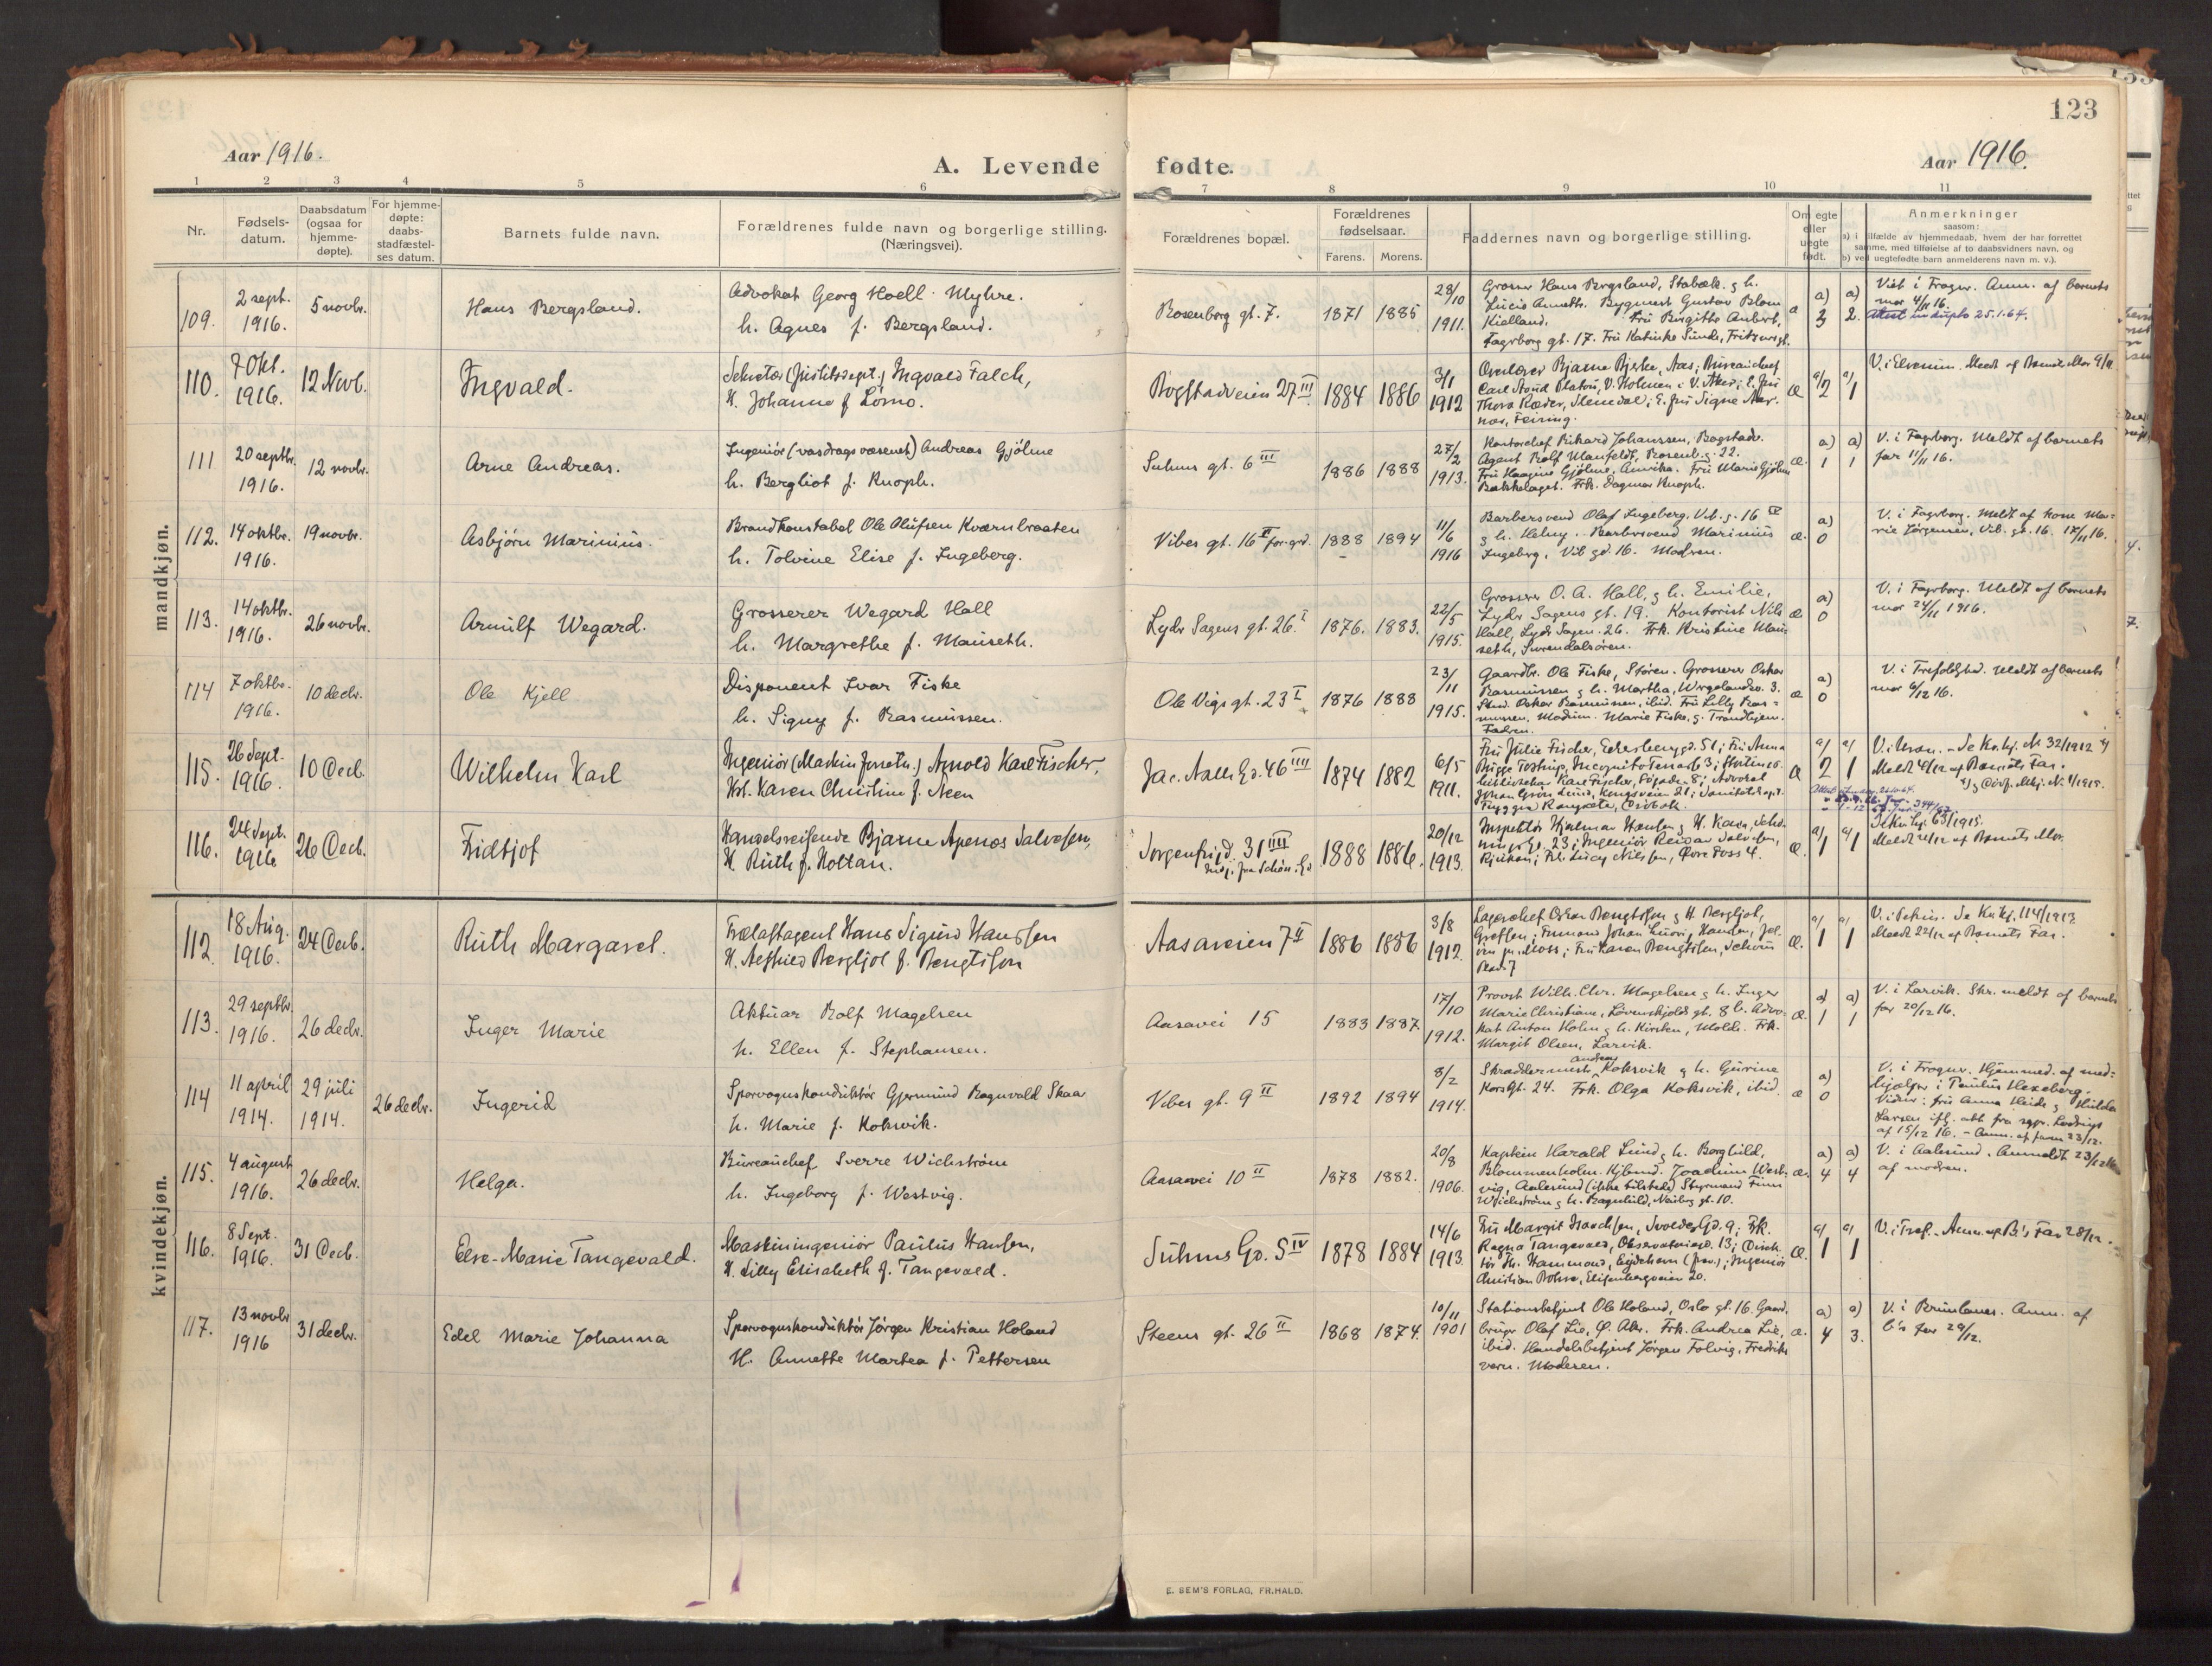 123
Aar 1916.
A. Levende fødte.
Aar 1916.
1 2 3 4 5 6 7 8 9 10 11
Nr.
Fødsels-
datum.
Daabsdatum
(ogsaa for
hjemme-
døpte).
For hjemme-
døpte:
daabs-
stadfæstel-
ses datum.
Barnets fulde navn.
Forældrenes fulde navn og borgerlige stilling.
(Næringsvei).
Forældrenes bopæl.
Forældrenes
fødselsaar.
Farens. Morens.
Faddernes navn og borgerlige stilling.
Om egte
eller
uegte
født.
Anmerkninger
saasom:
a) i tilfælde av hjemmedaab, hvem der har forrettet
samme, med tilføielse af to daabsvidners navn, og
b) ved uegtefødte barn anmelderens navn m. v.).
mandkjøn.
109.
2 sept.
1916.
5 novbr.
Hans Bergsland.
Advokat Georg Hoell Myhre.
h. Agnes f. Bergsland.
Rosenborg gt. 7.
1871 1885
28/10
1911.
Grosser Hans Bergsland, Stabæk. g h.
Lucie Anneth. Bygmest Gustav Blom
Kielland, Fru Birgitte Aubert,
Fagrborg gt. 17. Fru Katinke Sunde,
a) 3
a) 2.
Viet i Frogner. Anm. af barnets
mor 4/11 16.
Attest in duplo 25.1.64.
110.
7 Okt.
1916.
12 Novb.
Ingvald.
Sekretær (Justitsdept.) Ingvald Falch,
H. Johanne f. Lømo.
Bogstadveien 27 III
1884 1886
3/1
1912
Overlærer Bjarne Bjerke, Aas; Bureauchef
Carl Platou, V. Holmen i V. Aker; E. Fru
Thora Ræder, Stendal; E. Fru Signe
Feiring.
æ
a/ 2
a/ 1
V. i Elverum. Meldt af Barnets Mor 9/11
111
20 septbr.
1916.
12 novbr.
Arne Andreas.
Ingeniør (vasdragsvæsenet) Andreas Gjølme
h. Bergliot f. Knoph.
Suhms gt. 6 III
1886 1888
27/2
1913.
Kontorchef Rikard Johanssen, Bogstadv.
Agent Rolf Manfeldt, Rosenb.g. 22.
Fru Gjølme, Amerika. Fru Marie Gjølme
Bækkelaget. Frk. Dagmar Knoph.
æ.
a) 1
a) 1
V. i Fagrborg. Meldt af barnets
far 11/11 16.
112.
14 oktbr.
1916.
19 novbr.
Asbjørn Marinius.
Brandkonstabel Ole Olufsen Kværnbraaten
h. Tolvine Elise f. Ingeberg.
Vibes gt. 16 II for.grd.
1888 1894
11/6
1916
Barbersvend Olaf Ingeberg, Vib. g. 16 IV
g h. Helny. Barbersvend Marinius
Ingeberg, Vib gd. 16. Modren.
æ.
a) 0
V. i Fagrborg. Meldt af kone Ma-
rie Jørgensen, Vib. gt. 16. 17/11 16.
113.
14 oktbr.
1916.
26 novbr.
Arnulf Wegard.
Grosserer Wegard Hall
h. Margrethe f. Mauseth.
Lydr Sagens gt. 26. I
1876. 1883.
22/5
1915.
Grosserer O. A. Hall, g h. Emilie,
Lydr Sagens gt. 19. Kontorist Nils
Hall, Lydr Sagen. 26. Frk. Kristine Mau-
seth, Surendalsøren.
æ
a) 0
V. i Fagrborg. Meldt af barnets
mor 24/11 1916.
114
7 oktbr.
1916.
10 decbr.
Ole Kjell
Disponent Ivar Fiske
h. Signy f. Rasmussen.
Ole Vigs gt. 23 I
1876 1888
23/11
1915.
Gaardbr. Ole Fiske, Støren. Grosserer Oskar
Rasmussen g h. Martha, Wergelandsv. 3.
Stud. Oskar Rasmussen, ibid. Fru Lilly Ras-
mussen, Modum. Marie Fiske, g. Trondhjem.
Fadren.
æ
a) 0
V. i Trefoldighed. Meldt af barnets
mor 6/12 16.
115.
26 Sept.
1916.
10 Decb.
Wilhelm Karl
Ingeniør (Maskinforretn.) Arnold Karl Fischer,
Hst. Karen Christine f. Neen
Jac. Aalls Gd. 46 IIII
1874 1882
6/5
1911.
Fru Julie Fischer, Eckersberggd. 51; Fru Anna
Bugge Tostrup, Incognito Terrasse 3;
Karl Fischer, 8; Advokat
Johan Grøn Lund, Kongsveien 21;
Drøbak.
æ
a/ 2
a/ 1
V. i Aron. - Se Kn.bj. N. 32/1912 x)
Meldt 4/12 af Barnets Far.
116.
24 Sept.
1916
26 Decb.
Fridtjof
Handelsreisende Bjarne Apenæs Salvesen,
H. Ruth f. Holtan.
Sorgenfrigd. 31 IIII
1888 1886.
20/12
1913.
Inspektør Hjalmar Hansen g H. Karen,
Gd. 23; Ingeniør Reidar Salvesen,
Rjukan; Frk. Lucy Nilssen, Øvre Foss 4.
æ.
a/ 1
a/ 1
Se Kn.bj. 63/1915.
Meldt 21/12 af Barnets Mor.
kvindekjøn.
112
18 Aug.
1916.
24 Decb.
Ruth Margaret.
Fælastagent Hans Sigurd Hanssen
H. Bergljot f. Bengtsson
Aasaveien 7 II
1886 1886
3/8
1912.
Lagerchef Oskar Bengtsson g H. Bergljot,
Grefsen; Johan Ludvig Hansen,
Moss; Fru Karen Bengtssen,
7
æ.
a/ 1
a/ 1
V. i Petrus. Se Kn.bj. 114/1913
Meldt 22/12 af Barnets Far.
113.
29 septbr.
1916.
26 decbr.
Inger Marie
Aktuar Rolf Magelsen
h. Ellen f. Stephansen.
Aasavei 15
1883 1887
17/10
1912.
Provst Wilh. Chr. Magelsen g h. Inger
Marie Christiane, Løvenskjolds gt. 8 b. Advo-
kat Anton Holm g h. Kirsten, Molde. Frk.
Margit Olsen, Larvik.
æ.
a) 1
a) 1
V. i Larvik. Skr. meldt af barnets
far 20/12 16.
114
11 april
1914.
29 juli
1914.
26 decbr.
Ingerid
Sporvognskonduktør Gjermund Ragnvald Skaar
h. Marie f. Koksvik.
Vibes gt. 9 II
1892 1894
8/2
1914.
Skræddermester Andreas Koksvik g h. Gurine
Korsgt. 24. Frk. Olga Koksvik, ibid.
æ
a) 0
V. i Frogner. Hjemmed. af med-
hjælper i Paulus Hexeberg.
Vidner: fru Anna Heide g Hulda
Larsen ifg. att. fra sgpr.
af 15/12 16. - Anm. af faren 23/12.
115.
4 august
1916.
26 decbr.
Helga.
Bureauchef Sverre Wichstrøm
h. Ingeborg f. Westvig.
Aasavei 10 II
1878 1882.
20/8
1906.
Kaptein Harald Lund g h. Borghild,
Blommenholm. Kjbmd. Joachim West-
vig, Aalesund (ikke tilstede) Styrmand Finn
Wichstrøm g h. Ragnhild, Neuberg gt. 10.
æ.
a) 4
a) 4
V. i Aalesund. Anmeldt 23/12 16
af modren.
116.
8 Sept.
1916.
31 Decb.
Else-Marie Tangevald.
Maskiningeniør Paulus Hansen,
H. Lilly Elisabeth f. Tangevald.
Suhms Gd. 5 IV
1878 1884
14/6
1913.
Fru Margit Isachsen, Svolder Gd. 9; Frk.
Ragna Tangevald, Observatoriegd. 13; Direk-
tør Th. Hammond, Eydehavn (frav.); Ingeniør
Christian Bohse, Elisenbergveien 20.
æ.
a/ 1
a/ 1
V. i Tref. Anm. af B's Far 28/12.
117.
13 novbr
1916
31 decbr.
Edel Marie Johanna
Sporvognskonduktør Jørgen Kristian Holand
H. Annette Martea f. Pettersen
Steens gt. 26 II
1868 1874.
10/11
1901
Stationsbetjent Ole Holand, Oslo gt. 16. Gaard-
bruger Olaf Lie, Ø. Aker. Frk. Andrea Lie,
ibid. Handelsbetjent Jørgen Folvig, Fredriks-
vern. Moderen.
æ.
a) 4
a) 3.
V. i Brunlanes. Anm. af
b's far 29/12.
E. SEM'S FORLAG, FR.HALD.